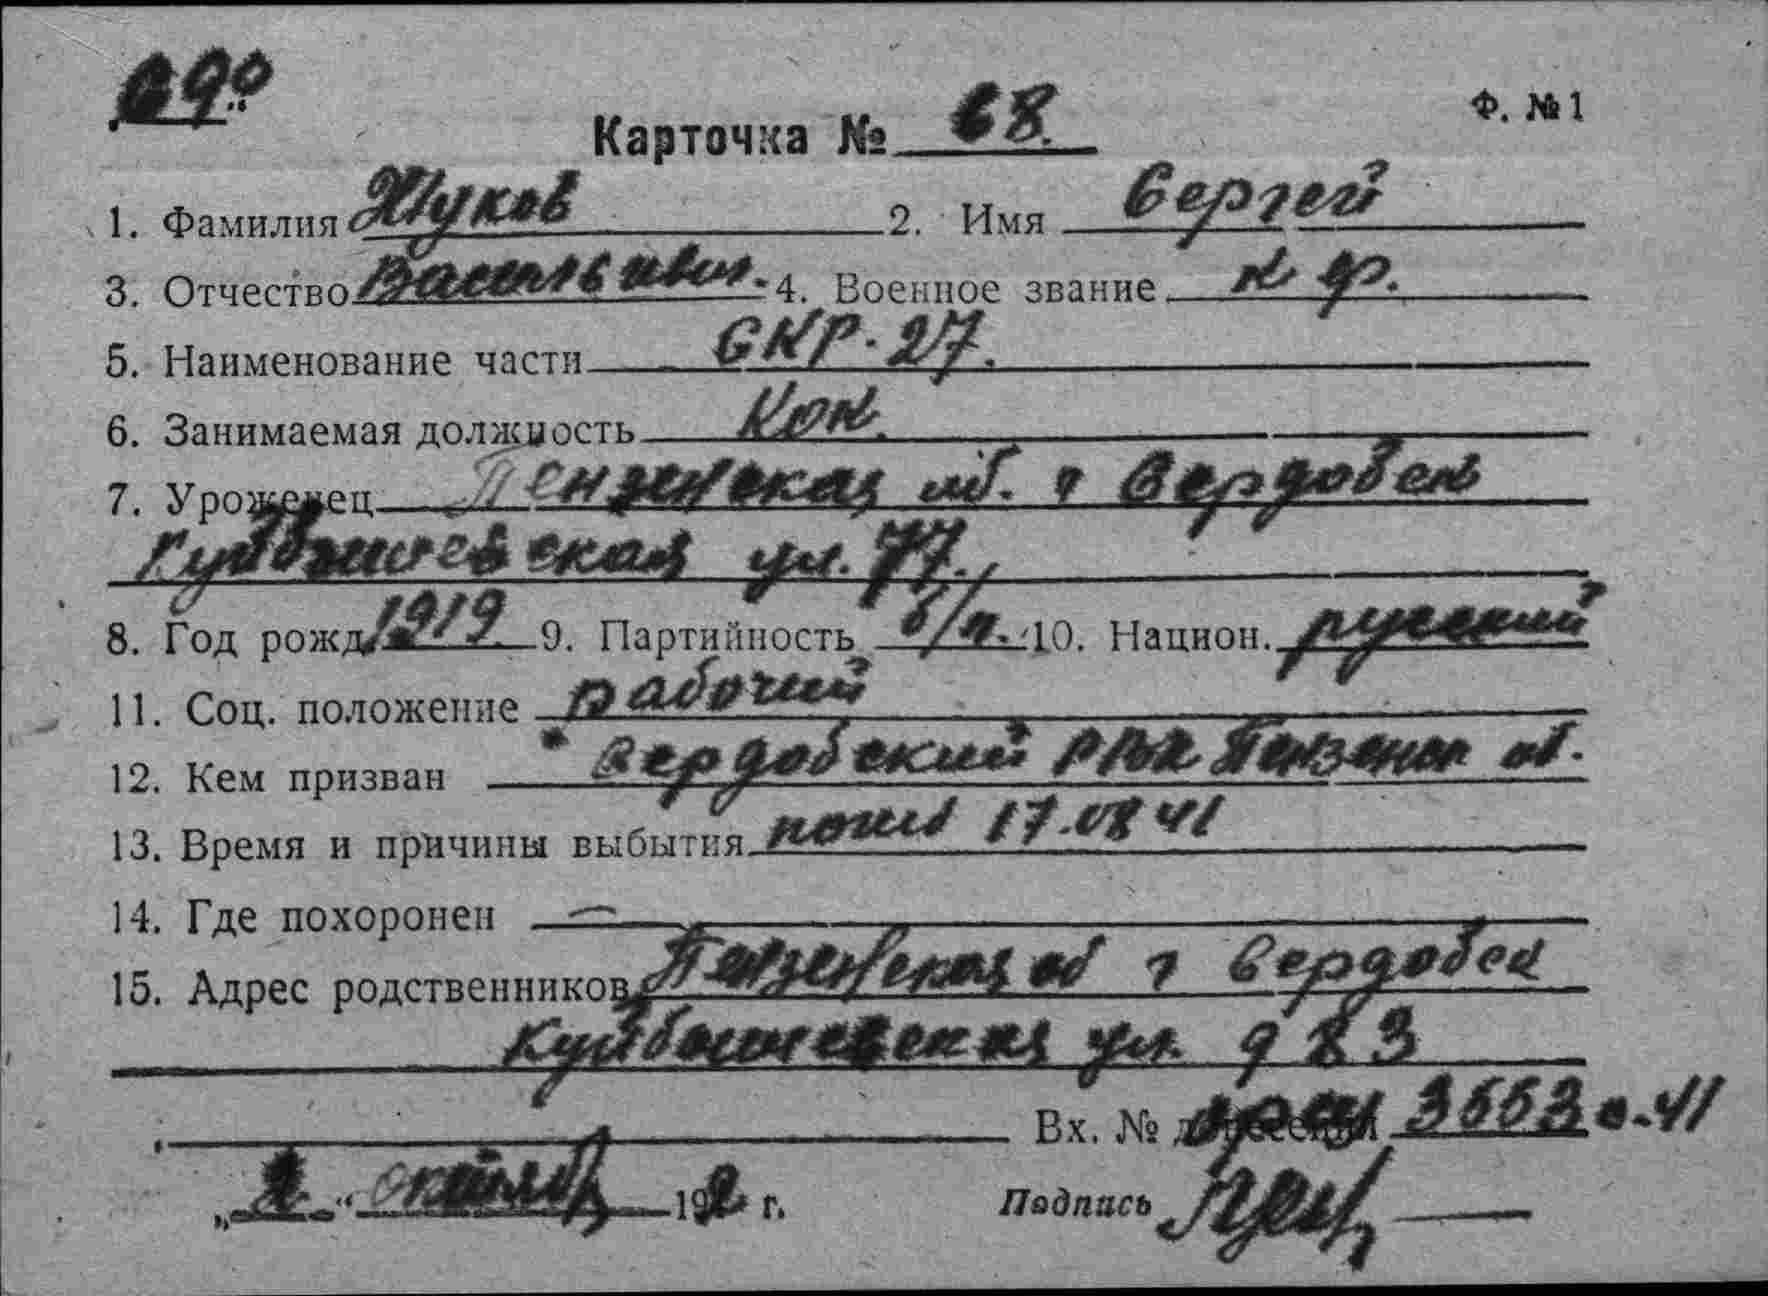 Ф. №1
Карточка № 68.
1. Фамилия Жуков 2. Имя Сергей
3. Отчество Васильевич. 4. Военное звание кр.
5. Наименование части СКР-27.
6. Занимаемая должность Кок.
7. Уроженец Пензенская об. г Сердобск
Куйбышевская ул. 77.
8. Год рожд. 1919 9. Партийность б/п. 10. Национ. русский
11. Соц. положение рабочий
12. Кем призван Сердобский РВК Пензенск об.
13. Время и причины выбытия погиб 17.08 41
14. Где похоронен —
15. Адрес родственников Пензенская об г Сердобск
Куйбышевская ул. д 83
Вх. № 3663 с-41
октября 19 г. Подпись